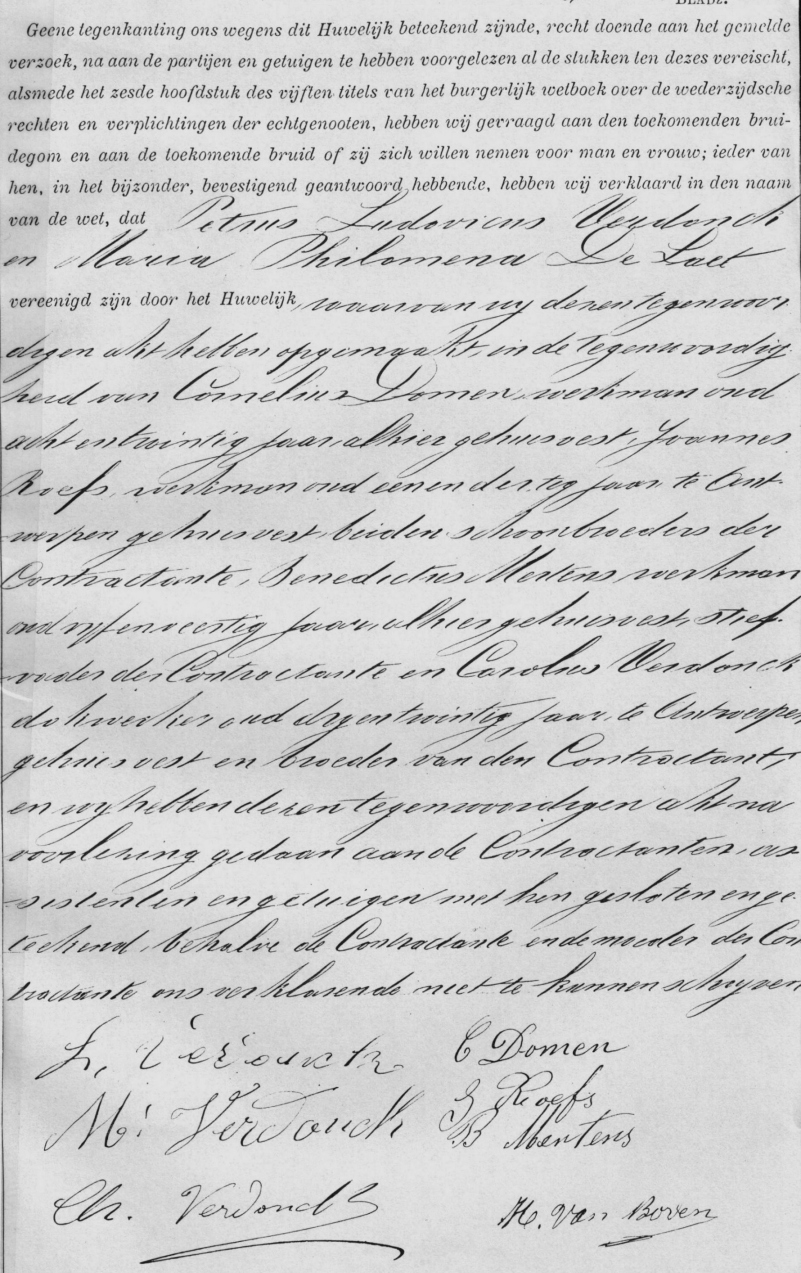 BLADZ.
Geene tegenkanting ons wegens dit Huwelijk beteekend zijnde, recht doende aan het gemelde
verzoek, na aan de partijen en getuigen te hebben voorgelezen al de stukken ten dezes vereischt,
alsmede het zesde hoofdstuk des vijften titels van het burgerlijk wetboek over de wederzijdsche
rechten en verplichtingen der echtgenooten, hebben wij gevraagd aan den toekomenden brui-
degom en aan de toekomende bruid of zij zich willen nemen voor man en vrouw; ieder van
hen, in het bijzonder, bevestigend geantwoord hebbende, hebben wij verklaard in den naam
van de wet, dat Petrus Ludovicus Verdonck
en Maria Philomena De Laet
vereenigd zijn door het Huwelijk, waarvan wy dezen tegenwoor-
digen akt hebben opgemaakt, in de tegenwoordig
heid van Cornelius Domen, werkman oud
acht en twintig jaar, alhier gehuisvest, Joannes
Roefs, werkman oud een en dertig jaar, te Ant-
werpen gehuisvest, beiden schoonbroeders der
Contractante, Benedictus Mertens, werkman
oud vyf en veertig jaar, alhier gehuisvest, stief-
vader der Contractante en Carolus Verdonck
dokwerker oud dry en twintig jaar, te Antwerpen
gehuisvest en broeder van den Contractant,
en wy hebben dezen tegenwoordigen akt na
voorlezing gedaan aan de Contractanten, as-
sistenten en getuigen met hen gesloten en ge-
teekend, behalve de Contractante en de moeder der Con
tractante ons verklarende niet te kunnen schryven
L. Verdonck C Domen
J Roefs
Mi Verdonck B Mertens
Ch. Verdonck H. Van Boven